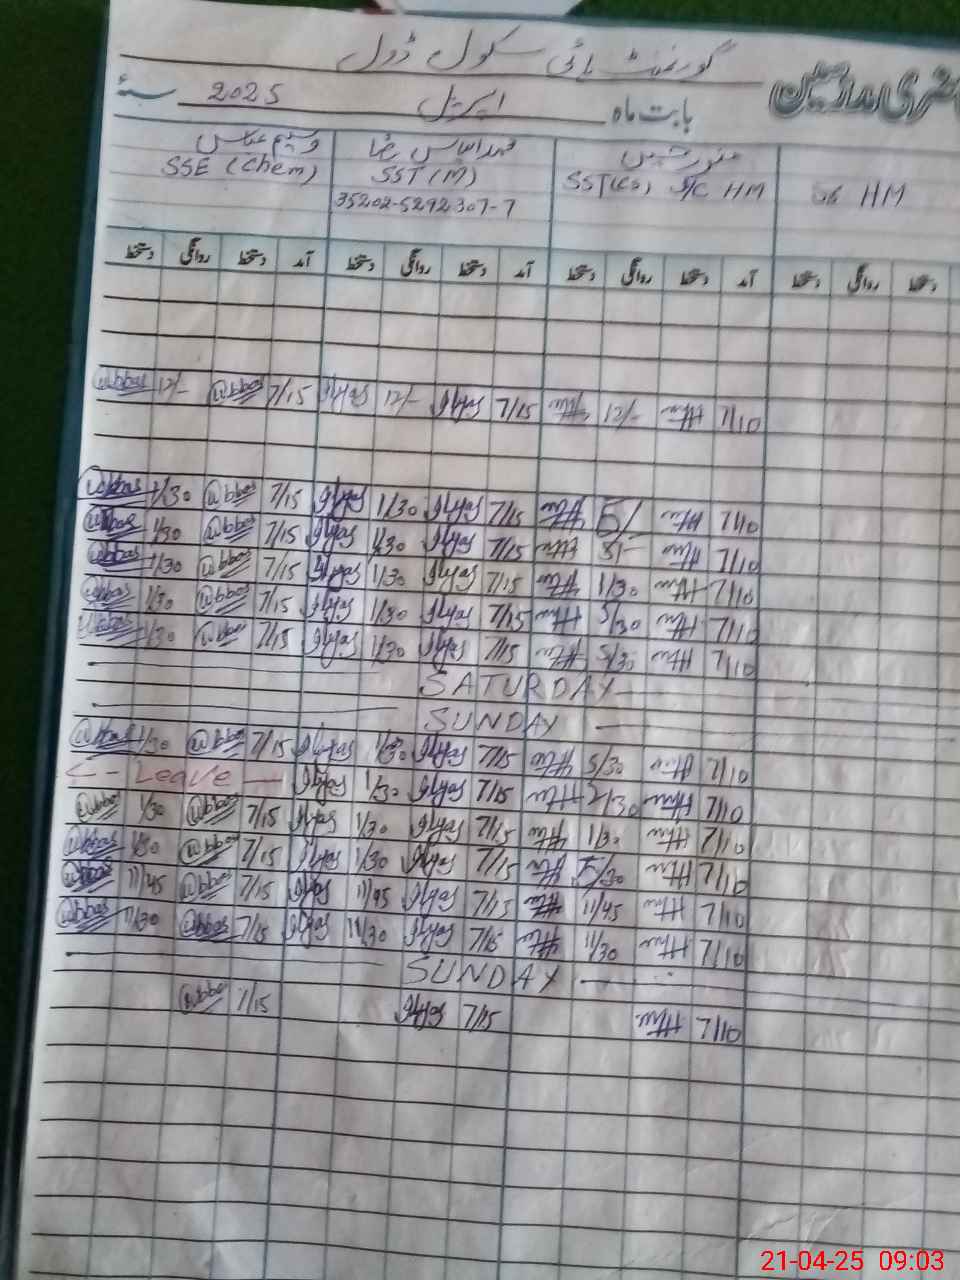 گورنمنٹ ہائی سکول ڈول
حاضری مدارسین بابت ماہ اپریل 2025 سنہ
منور حسین محمد الیاس رضا وسیم عباس
HM SST(CS) I/C HM SST(M) SSE (Chem)
35202-5292307-7
دستخط روانگی دستخط آمد دستخط روانگی دستخط آمد دستخط روانگی دستخط آمد دستخط روانگی دستخط
@bbas 12/- @bbas 7/15 Ilyas 12/- Ilyas 7/15 12/- 7/10
@bbas 1/30 @bbas 7/15 Ilyas 1/30 Ilyas 7/15 5/ 7/10
@bbas 1/30 @bbas 7/15 Ilyas 1/30 Ilyas 7/15 5/- 7/10
@bbas 1/30 @bbas 7/15 Ilyas 1/30 Ilyas 7/15 1/30 7/10
@bbas 1/30 @bbas 7/15 Ilyas 1/30 Ilyas 7/15 5/30 7/10
@bbas 1/30 @bbas 7/15 Ilyas 1/30 Ilyas 7/15 5/30 7/10
SATURDAY
SUNDAY
@bbas 1/30 @bbas 7/15 Ilyas 1/30 Ilyas 7/15 5/30 7/10
Leave Ilyas 1/30 Ilyas 7/15 2/30 7/10
@bbas 1/30 @bbas 7/15 Ilyas 1/30 Ilyas 7/15 1/30 7/10
@bbas 1/30 @bbas 7/15 Ilyas 1/30 Ilyas 7/15 5/30 7/10
@bbas 11/45 @bbas 7/15 Ilyas 11/45 Ilyas 7/15 11/45 7/10
@bbas 11/30 @bbas 7/15 Ilyas 11/30 Ilyas 7/15 11/30 7/10
SUNDAY
@bbas 7/15 Ilyas 7/15 7/10
21-04-25 09:03